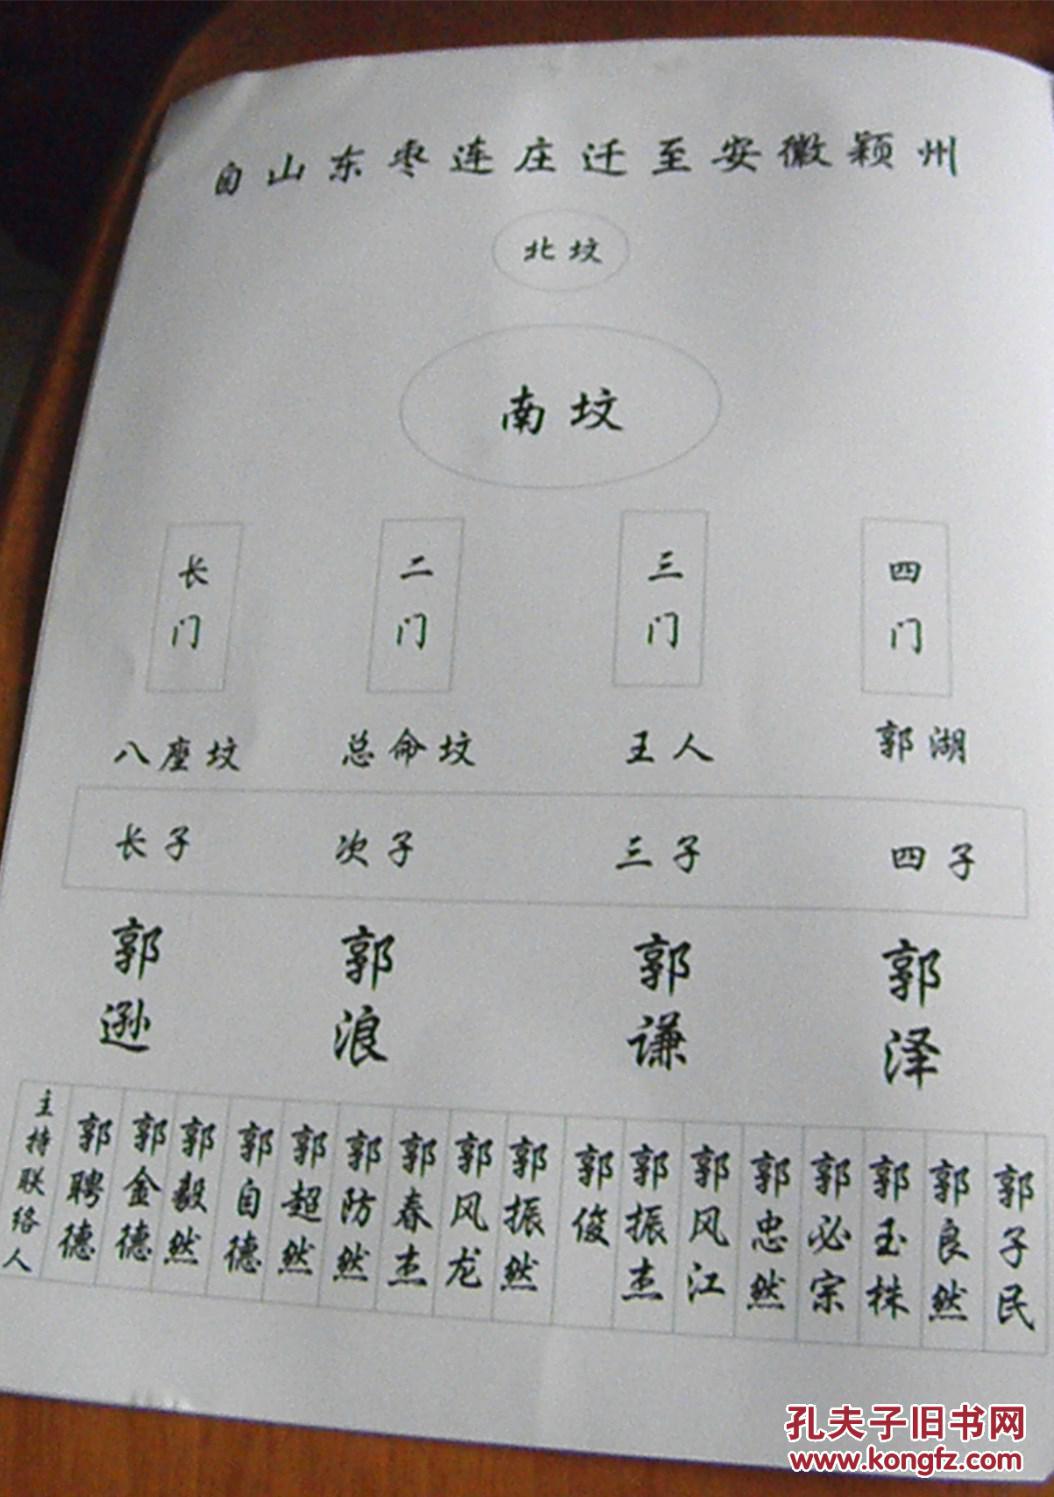 自山东枣连庄迁至安徽颖州
北坟
南坟
长门 二门 三门 四门
八座坟 总命坟 王人 郭湖
长子 次子 三子 四子
郭逊 郭浪 郭谦 郭泽
主持联络人 郭聘德 郭金德 郭毅然 郭自德 郭超然 郭防然 郭春杰 郭风龙 郭振然 郭俊 郭振杰 郭风江 郭忠然 郭必宗 郭玉株 郭良然 郭子民
孔夫子旧书网
www.kongfz.com